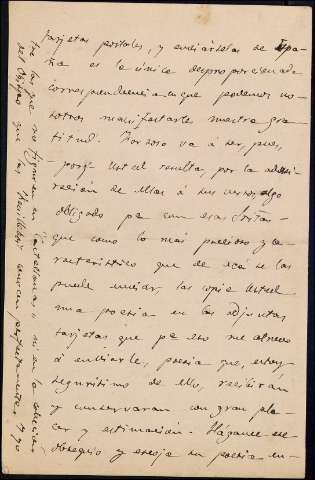 tarjetas postales, y enviártelas de Espa-
ña es la única desproporcionada
correspondencia en que podemos no-
sotros manifestarle nuestra gra-
titud. Forzoso va á ser, pues,
porq. Usted resulta, por la admi-
ración de ellas á sus versos, algo
obligado pa con esas Srtas
que como lo más precioso y ca-
racterístico que de acá se las
puede enviar, las copie Usted
una poesía en las adjuntas
tarjetas, que pa eso me atrevo
á enviarle, poesía que, estoy
segurísimo de ello, recibirán
y conservarán con gran pla-
cer y estimación. Hágame ese
obsequio y escoja su poesía en-
tre las que no figuren en "Castellanas" ni en la colección
del Obispo que las
conocen perfectamente. Y yo